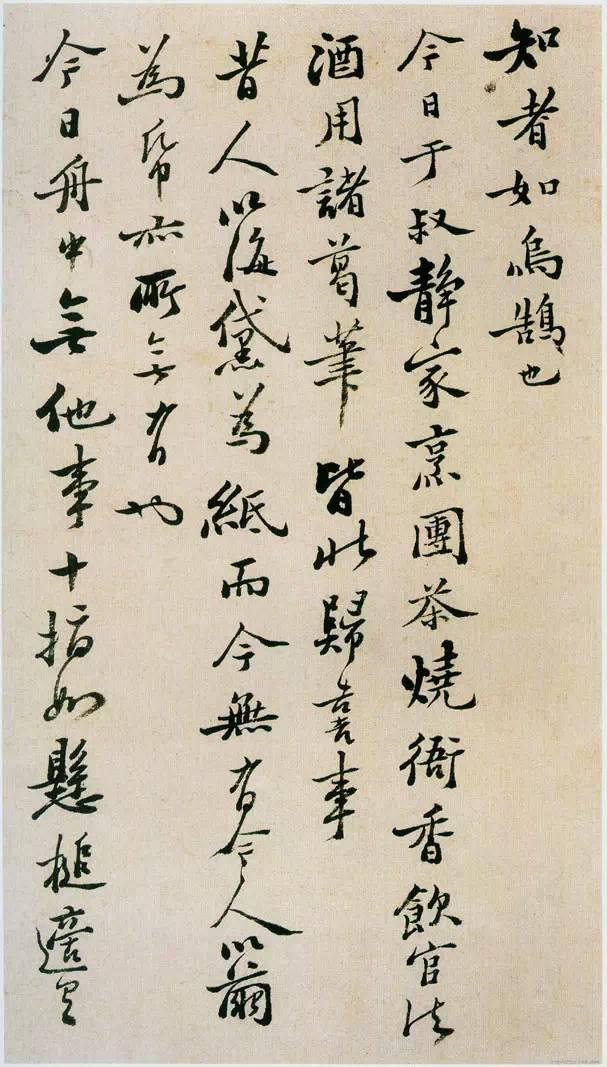 知者如烏鵠也
今日于叔靜家烹團茶燒衙香飲官法
酒用諸葛筆皆北歸喜事
昔人以海黛為紙而今無有今人以繭
為帋亦所無有也
今日舟中無他事十指如懸槌適